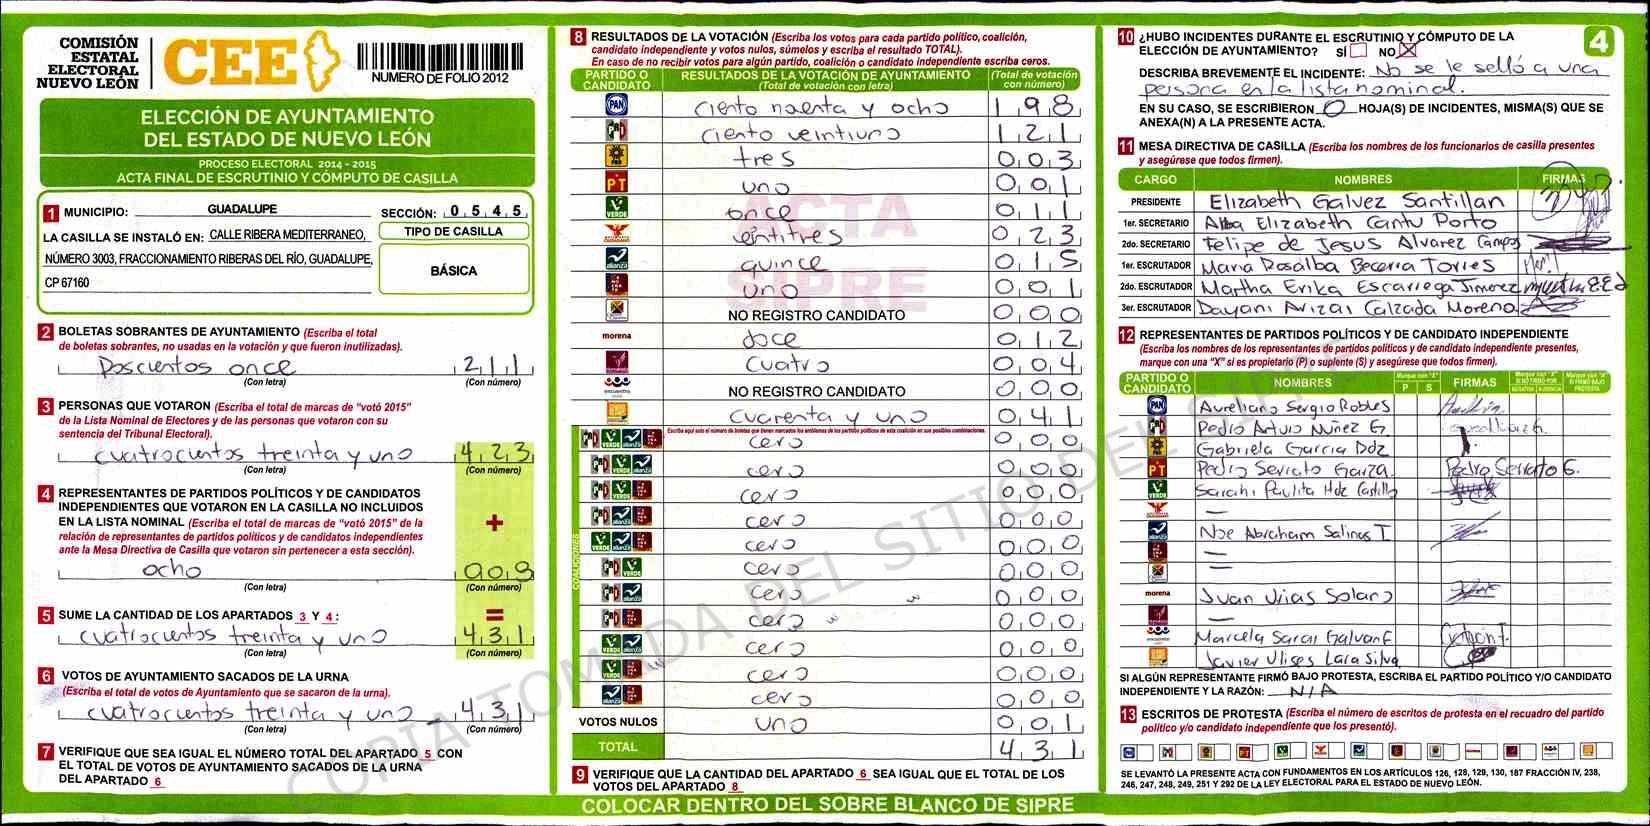 COMISIÓN
ESTATAL
ELECTORAL
NUEVO LEÓN
CEE
NUMERO DE FOLIO 2012
ELECCIÓN DE AYUNTAMIENTO
DEL ESTADO DE NUEVO LEÓN
PROCESO ELECTORAL 2014 - 2015
ACTA FINAL DE ESCRUTINIO Y CÓMPUTO DE CASILLA
1 MUNICIPIO: GUADALUPE SECCIÓN: 0 5 4 5
LA CASILLA SE INSTALÓ EN: CALLE RIBERA MEDITERRANEO,
NÚMERO 3003, FRACCIONAMIENTO RIBERAS DEL RÍO, GUADALUPE,
CP 67160
TIPO DE CASILLA
BÁSICA
2 BOLETAS SOBRANTES DE AYUNTAMIENTO (Escriba el total
de boletas sobrantes, no usadas en la votación y que fueron inutilizadas).
Doscientos once 2 1 1
(Con letra) (Con número)
3 PERSONAS QUE VOTARON (Escriba el total de marcas de “votó 2015”
de la Lista Nominal de Electores y de las personas que votaron con su
sentencia del Tribunal Electoral).
cuatrocientos treinta y uno 4 2 3
(Con letra) (Con número)
4 REPRESENTANTES DE PARTIDOS POLÍTICOS Y DE CANDIDATOS
INDEPENDIENTES QUE VOTARON EN LA CASILLA NO INCLUIDOS
EN LA LISTA NOMINAL (Escriba el total de marcas de “votó 2015” de la
relación de representantes de partidos políticos y de candidatos independientes
ante la Mesa Directiva de Casilla que votaron sin pertenecer a esta sección).
+
ocho 0 0 8
(Con letra) (Con número)
5 SUME LA CANTIDAD DE LOS APARTADOS 3 Y 4 : =
cuatrocientos treinta y uno 4 3 1
(Con letra) (Con número)
6 VOTOS DE AYUNTAMIENTO SACADOS DE LA URNA
(Escriba el total de votos de Ayuntamiento que se sacaron de la urna).
cuatrocientos treinta y uno 4 3 1
(Con letra) (Con número)
7 VERIFIQUE QUE SEA IGUAL EL NÚMERO TOTAL DEL APARTADO 5 CON
EL TOTAL DE VOTOS DE AYUNTAMIENTO SACADOS DE LA URNA
DEL APARTADO 6
8 RESULTADOS DE LA VOTACIÓN (Escriba los votos para cada partido político, coalición,
candidato independiente y votos nulos, súmelos y escriba el resultado TOTAL).
En caso de no recibir votos para algún partido, coalición o candidato independiente escriba ceros.
PARTIDO O CANDIDATO RESULTADOS DE LA VOTACIÓN DE AYUNTAMIENTO (Total de votación con letra) (Total de votación con número)
PAN ciento noventa y ocho 1 9 8
PRD ciento veintiuno 1 2 1
PRD tres 0 0 3
PT uno 0 0 1
VERDE once 0 1 1
veintitres 0 2 3
alianza quince 0 1 5
uno 0 0 1
NO REGISTRO CANDIDATO 0 0 0
morena doce 0 1 2
cuatro 0 0 4
NO REGISTRO CANDIDATO 0 0 0
cuarenta y uno 0 4 1
COALICIONES
Escriba aquí solo el número de boletas que tienen marcados los emblemas de los partidos políticos de esta coalición en sus posibles combinaciones.
cero 0 0 0
cero 0 0 0
cero 0 0 0
cero 0 0 0
cero 0 0 0
cero 0 0 0
cero 0 0 0
cero 0 0 0
cero 0 0 0
cero 0 0 0
cero 0 0 0
VOTOS NULOS uno 0 0 1
TOTAL 4 3 1
9 VERIFIQUE QUE LA CANTIDAD DEL APARTADO 6 SEA IGUAL QUE EL TOTAL DE LOS
VOTOS DEL APARTADO 8
COLOCAR DENTRO DEL SOBRE BLANCO DE SIPRE
ACTA
SIPRE
COPIA TOMADA DEL SITIO DEL SIPRE
10 ¿HUBO INCIDENTES DURANTE EL ESCRUTINIO Y CÓMPUTO DE LA
ELECCIÓN DE AYUNTAMIENTO? SÍ NO X
4
DESCRIBA BREVEMENTE EL INCIDENTE: No se le selló a una
persona en la lista nominal.
EN SU CASO, SE ESCRIBIERON 0 HOJA(S) DE INCIDENTES, MISMA(S) QUE SE
ANEXA(N) A LA PRESENTE ACTA.
11 MESA DIRECTIVA DE CASILLA (Escriba los nombres de los funcionarios de casilla presentes
y asegúrese que todos firmen).
CARGO NOMBRES FIRMAS
PRESIDENTE Elizabeth Galvez Santillan
1er. SECRETARIO Alba Elizabeth Cantu Porto
2do. SECRETARIO Felipe de Jesus Alvarez Campos
1er. ESCRUTADOR Maria Rosalba Becerra Torres
2do. ESCRUTADOR Martha Erika Escarriega Jimenez
3er. ESCRUTADOR Dayani Arizai Calzada Moreno
12 REPRESENTANTES DE PARTIDOS POLÍTICOS Y DE CANDIDATO INDEPENDIENTE
(Escriba los nombres de los representantes de partidos políticos y de candidato independiente presentes,
marque con una “X” si es propietario (P) o suplente (S) y asegúrese que todos firmen).
PARTIDO O CANDIDATO NOMBRES Marque con "X" P S FIRMAS
PAN Aureliano Sergio Robles
Pedro Arturo Nuñez G.
PRD Gabriela Garcia Ddz
PT Pedro Serrato Garza Pedro Serrato G.
VERDE Sarahi Paulita Hdz Castillo
—
alianza Noe Abraham Salinas T
—
—
morena Juan Urias Solano
—
Marcela Sarai Galvan E
Javier Ulises Lara Silva
SI ALGÚN REPRESENTANTE FIRMÓ BAJO PROTESTA, ESCRIBA EL PARTIDO POLÍTICO Y/O CANDIDATO
INDEPENDIENTE Y LA RAZÓN: N/A
13 ESCRITOS DE PROTESTA (Escriba el número de escritos de protesta en el recuadro del partido
político y/o candidato independiente que los presentó).
SE LEVANTÓ LA PRESENTE ACTA CON FUNDAMENTOS EN LOS ARTÍCULOS 126, 128, 129, 130, 187 FRACCIÓN IV, 238,
246, 247, 248, 249, 251 Y 292 DE LA LEY ELECTORAL PARA EL ESTADO DE NUEVO LEÓN.